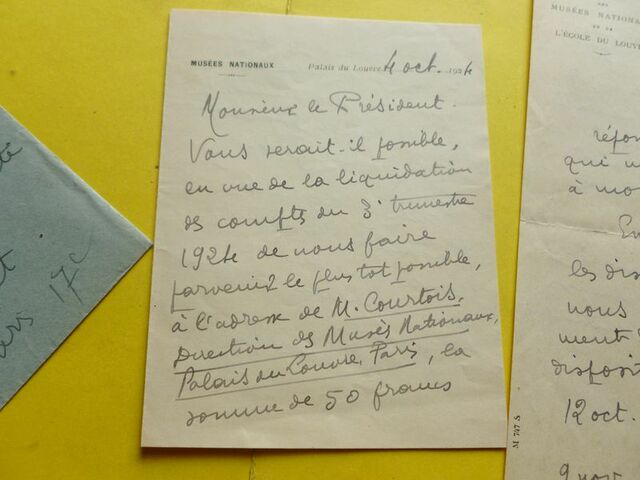 MUSÉES NATIONAUX
Palais du Louvre, 4 oct. 1924
Monsieur le Président.
Vous serait-il possible,
en vue de la liquidation
des compts du 3e trimestre
1924 de nous faire
parvenir le plus tot possible,
à l'adresse de M. Courtois,
Direction des Musés Nationaux,
Palais du Louvre, Paris, la
somme de 50 francs
MUSÉES NATIONA
L'ÉCOLE DU LOUV
répon
qui
à mo
En
les dis
nous
ment
disposit
12 oct.
9 nov.
M 747 S
17e